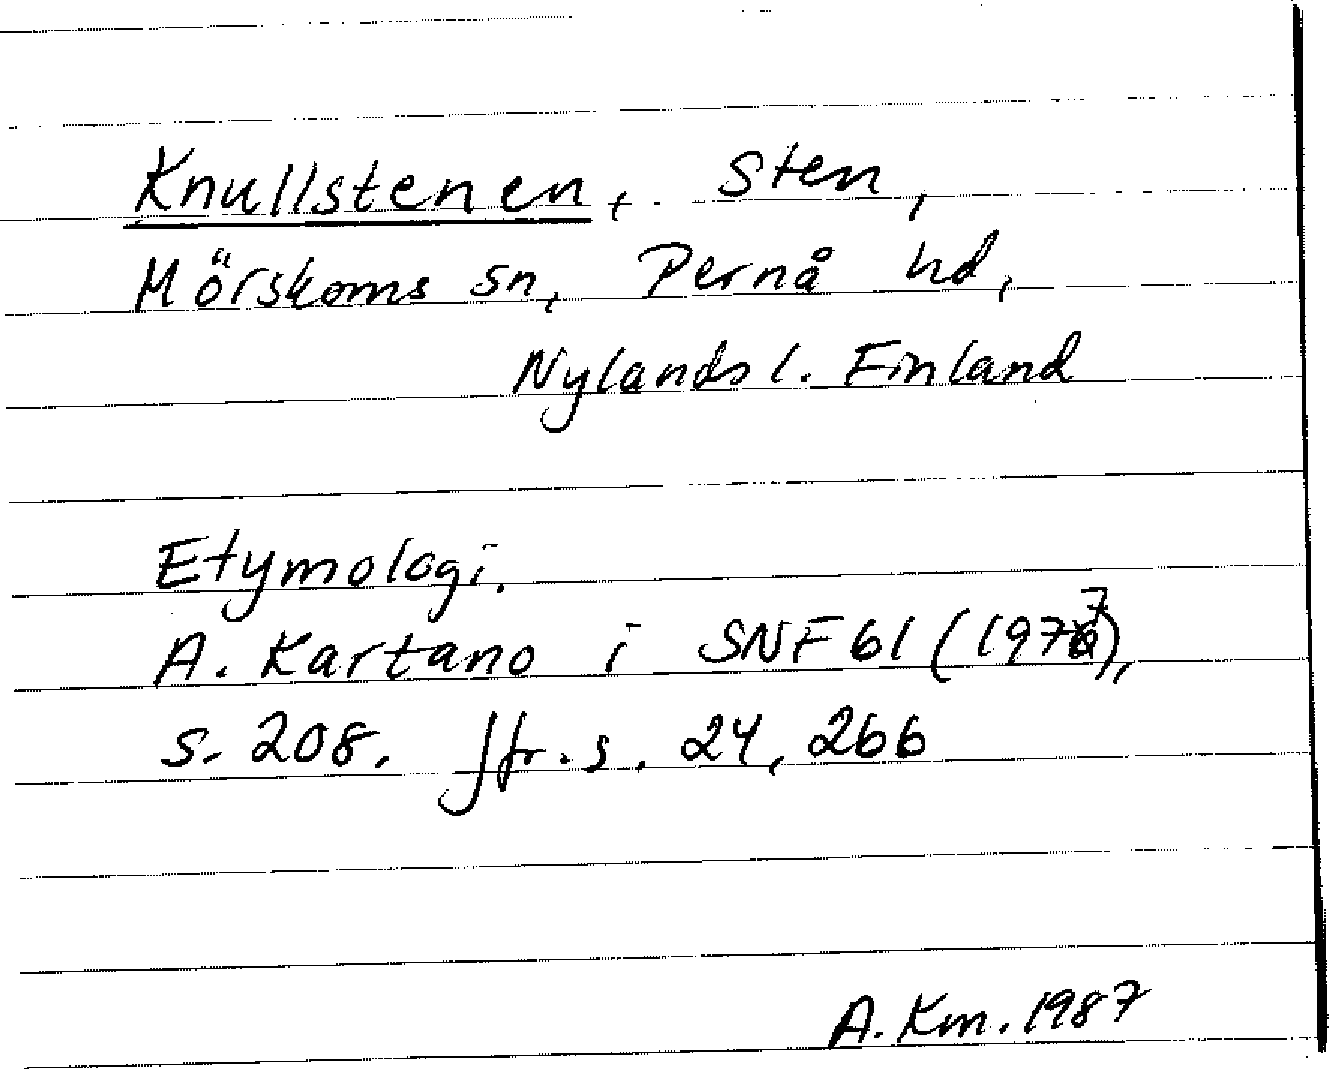 Knullstenen, sten,
Mörskoms sn, Pernå hd,
Nylands l. Finland
Etymologi.
A. Kartano i SNF 61 (1977),
s. 208. Jfr. s. 24, 266
A. Km. 1987